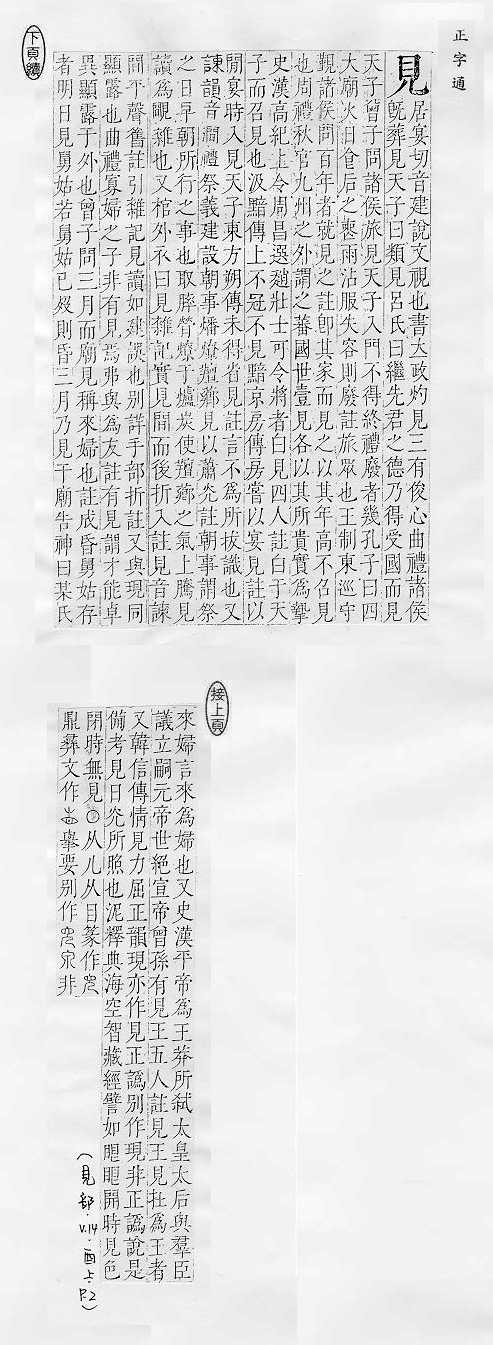 正字通
下頁續
見 居宴切音建說文視也書大政灼見三有俊心曲禮諸侯
旣葬見天子曰類見呂氏曰繼先君之德乃得受國而見
天子曾子問諸侯旅見天子入門不得終禮廢者幾孔子曰四
大廟火日食后之喪雨沾服失容則廢註旅眾也王制東巡守
覲諸侯問百年者就見之註卽其家而見之以其年高不召見
也周禮秋官九州之外謂之蕃國世壹見各以其所貴寶為摯
史漢高紀上令周昌選趙壯士可令將者白見四人註白于天
子而召見也汲黯傳上不冠不見黯京房傳房嘗以宴見註以
閒宴時入見天子東方朔傳未得省見註言不為所拔識也又
諫韻音澗禮祭義建設朝事燔燎羶薌見以蕭光註朝事謂祭
之日早朝所行之事也取膟膋燎于爐炭使羶薌之氣上騰見
讀為覸雜也又棺外衣曰見雜記實見閒而後折入註見音諫
閒平聲舊註引雜記見讀如建誤也別詳手部折註又與現同
顯露也曲禮寡婦之子非有見焉弗與為友註有見謂才能卓
異顯露于外也曾子問三月而廟見稱來婦也註成昏舅姑存
者明日見舅姑若舅姑已歿則昏三月乃見于廟告神曰某氏
接上頁
來婦言來為婦也又史漢平帝為王莽所弒太皇太后與羣臣
議立嗣元帝世絕宣帝曾孫有見王五人註見王見在為王者
又韓信傳情見力屈正韻現亦作見正譌別作現非正譌說是
備考見日光所照也泥釋典海空智藏經譬如𥇒眼開時見色
閉時無見〇从儿从目篆作
鼎彝文作 舉要別作 非
(見部.V.14.酉上.P.2)